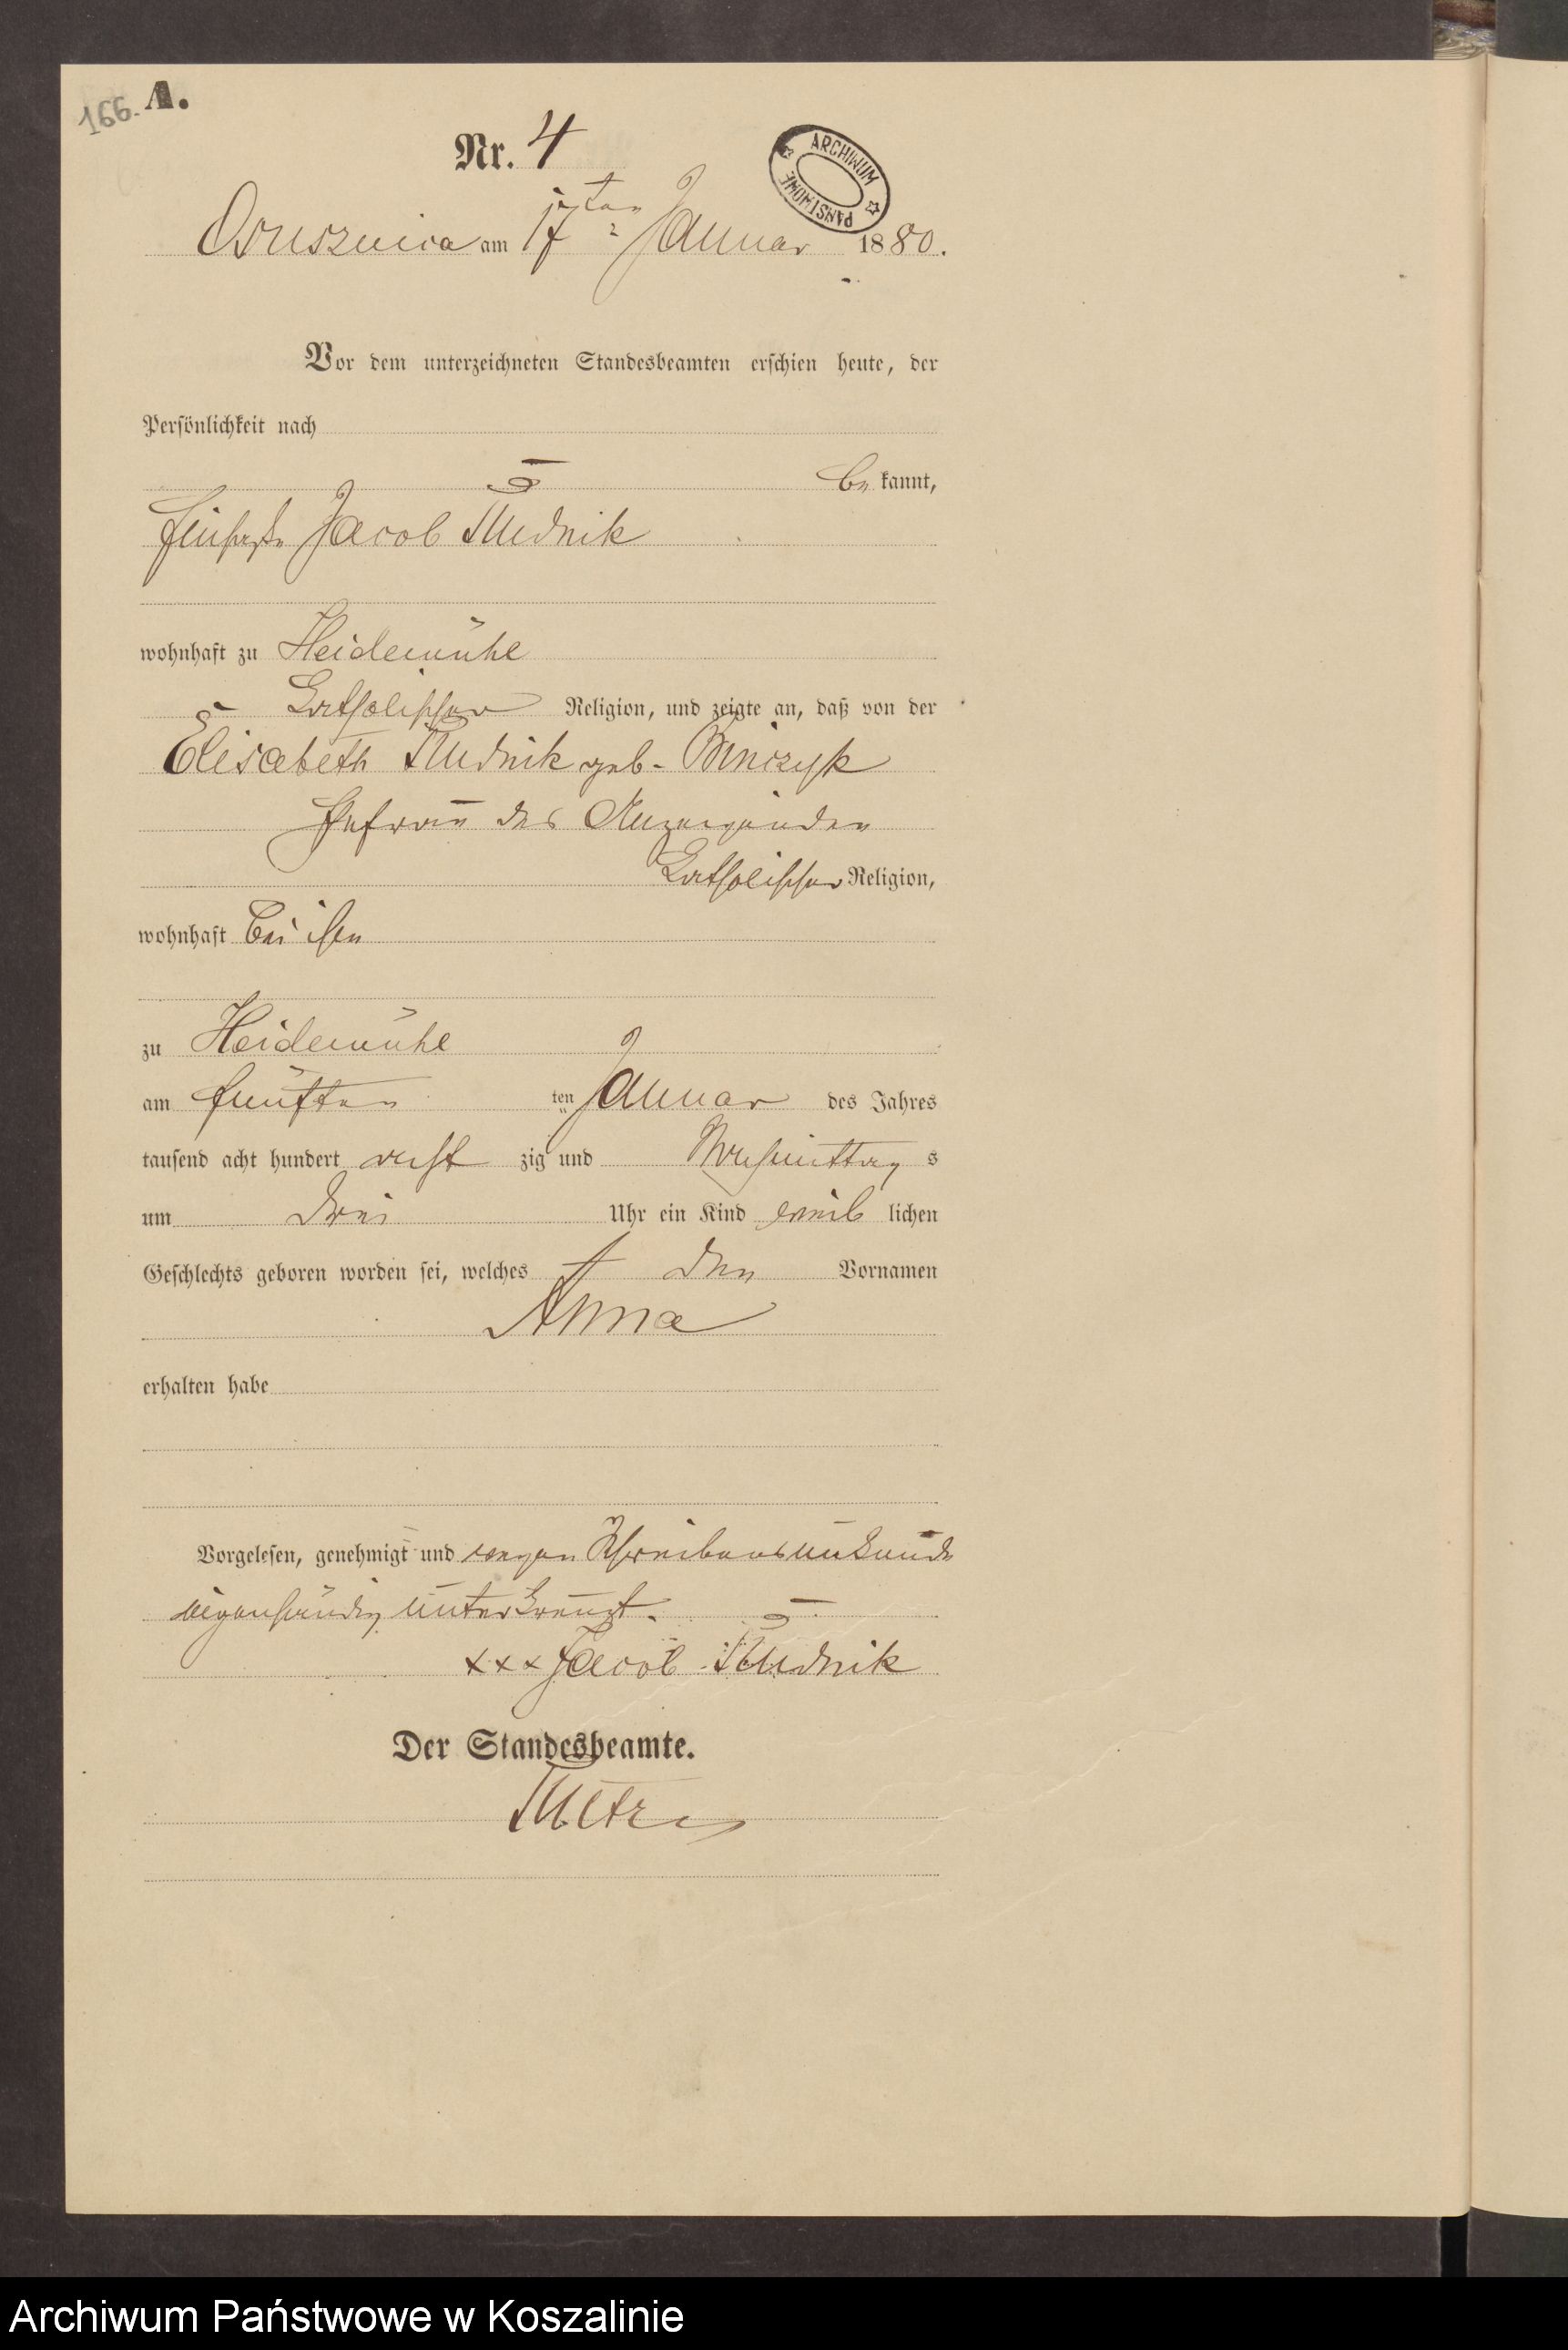 166. A.
Nr. 4
ARCHIWUM PAŃSTWOWE
Borusznica am 17ten Januar 1880.
Vor dem unterzeichneten Standesbeamten erschien heute, der
Persönlichkeit nach
bekannt,
Jacob Rudnik
wohnhaft zu Heidemühl
katholischer Religion, und zeigte an, daß von der
Elisabeth Rudnik geb.
Ehefrau des Anzeigenden
katholischer Religion,
wohnhaft bei ihm
zu Heidemühl
am fünften ten Januar des Jahres
tausend acht hundert acht zig und Nachmittag s
um drei Uhr ein Kind weib lichen
Geschlechts geboren worden sei, welches den Vornamen
Anna
erhalten habe
Vorgelesen, genehmigt und wegen Schreibensunkunde
eigenhändig unterkreuzt.
xxx Jacob Rudnik
Der Standesbeamte.
Archiwum Państwowe w Koszalinie